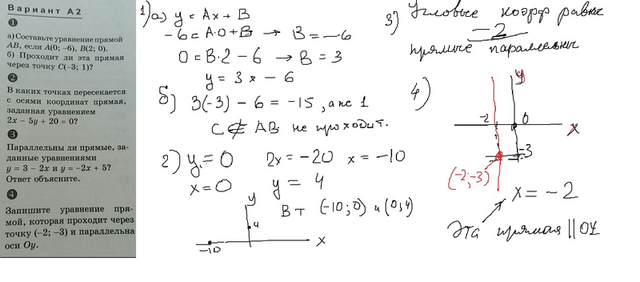 Вариант А2
1
а) Составьте уравнение прямой
AB, если A(0; −6), B(2; 0).
б) Проходит ли эта прямая
через точку C(−3; 1)?
2
В каких точках пересекается
с осями координат прямая,
заданная уравнением
2x − 5y + 20 = 0?
3
Параллельны ли прямые, за-
данные уравнениями
y = 3 − 2x и y = −2x + 5?
Ответ объясните.
4
Запишите уравнение пря-
мой, которая проходит через
точку (−2; −3) и параллельна
оси Oy.
1) а) y = Ax + B
−6 = A·0 + B → B = −6
0 = B·2 − 6 → B = 3
y = 3x − 6
б) 3(−3) − 6 = −15, а не 1
C ∉ AB не проходит.
2) y = 0 2x = −20 x = −10
x = 0 y = 4
В т (−10; 0) и (0; 4)
y
4
−10
x
3) Угловые коэф равны
−2
прямые параллельны
4)
y
−2
0
x
−3
(−2; −3)
x = −2
Эта прямая || OY